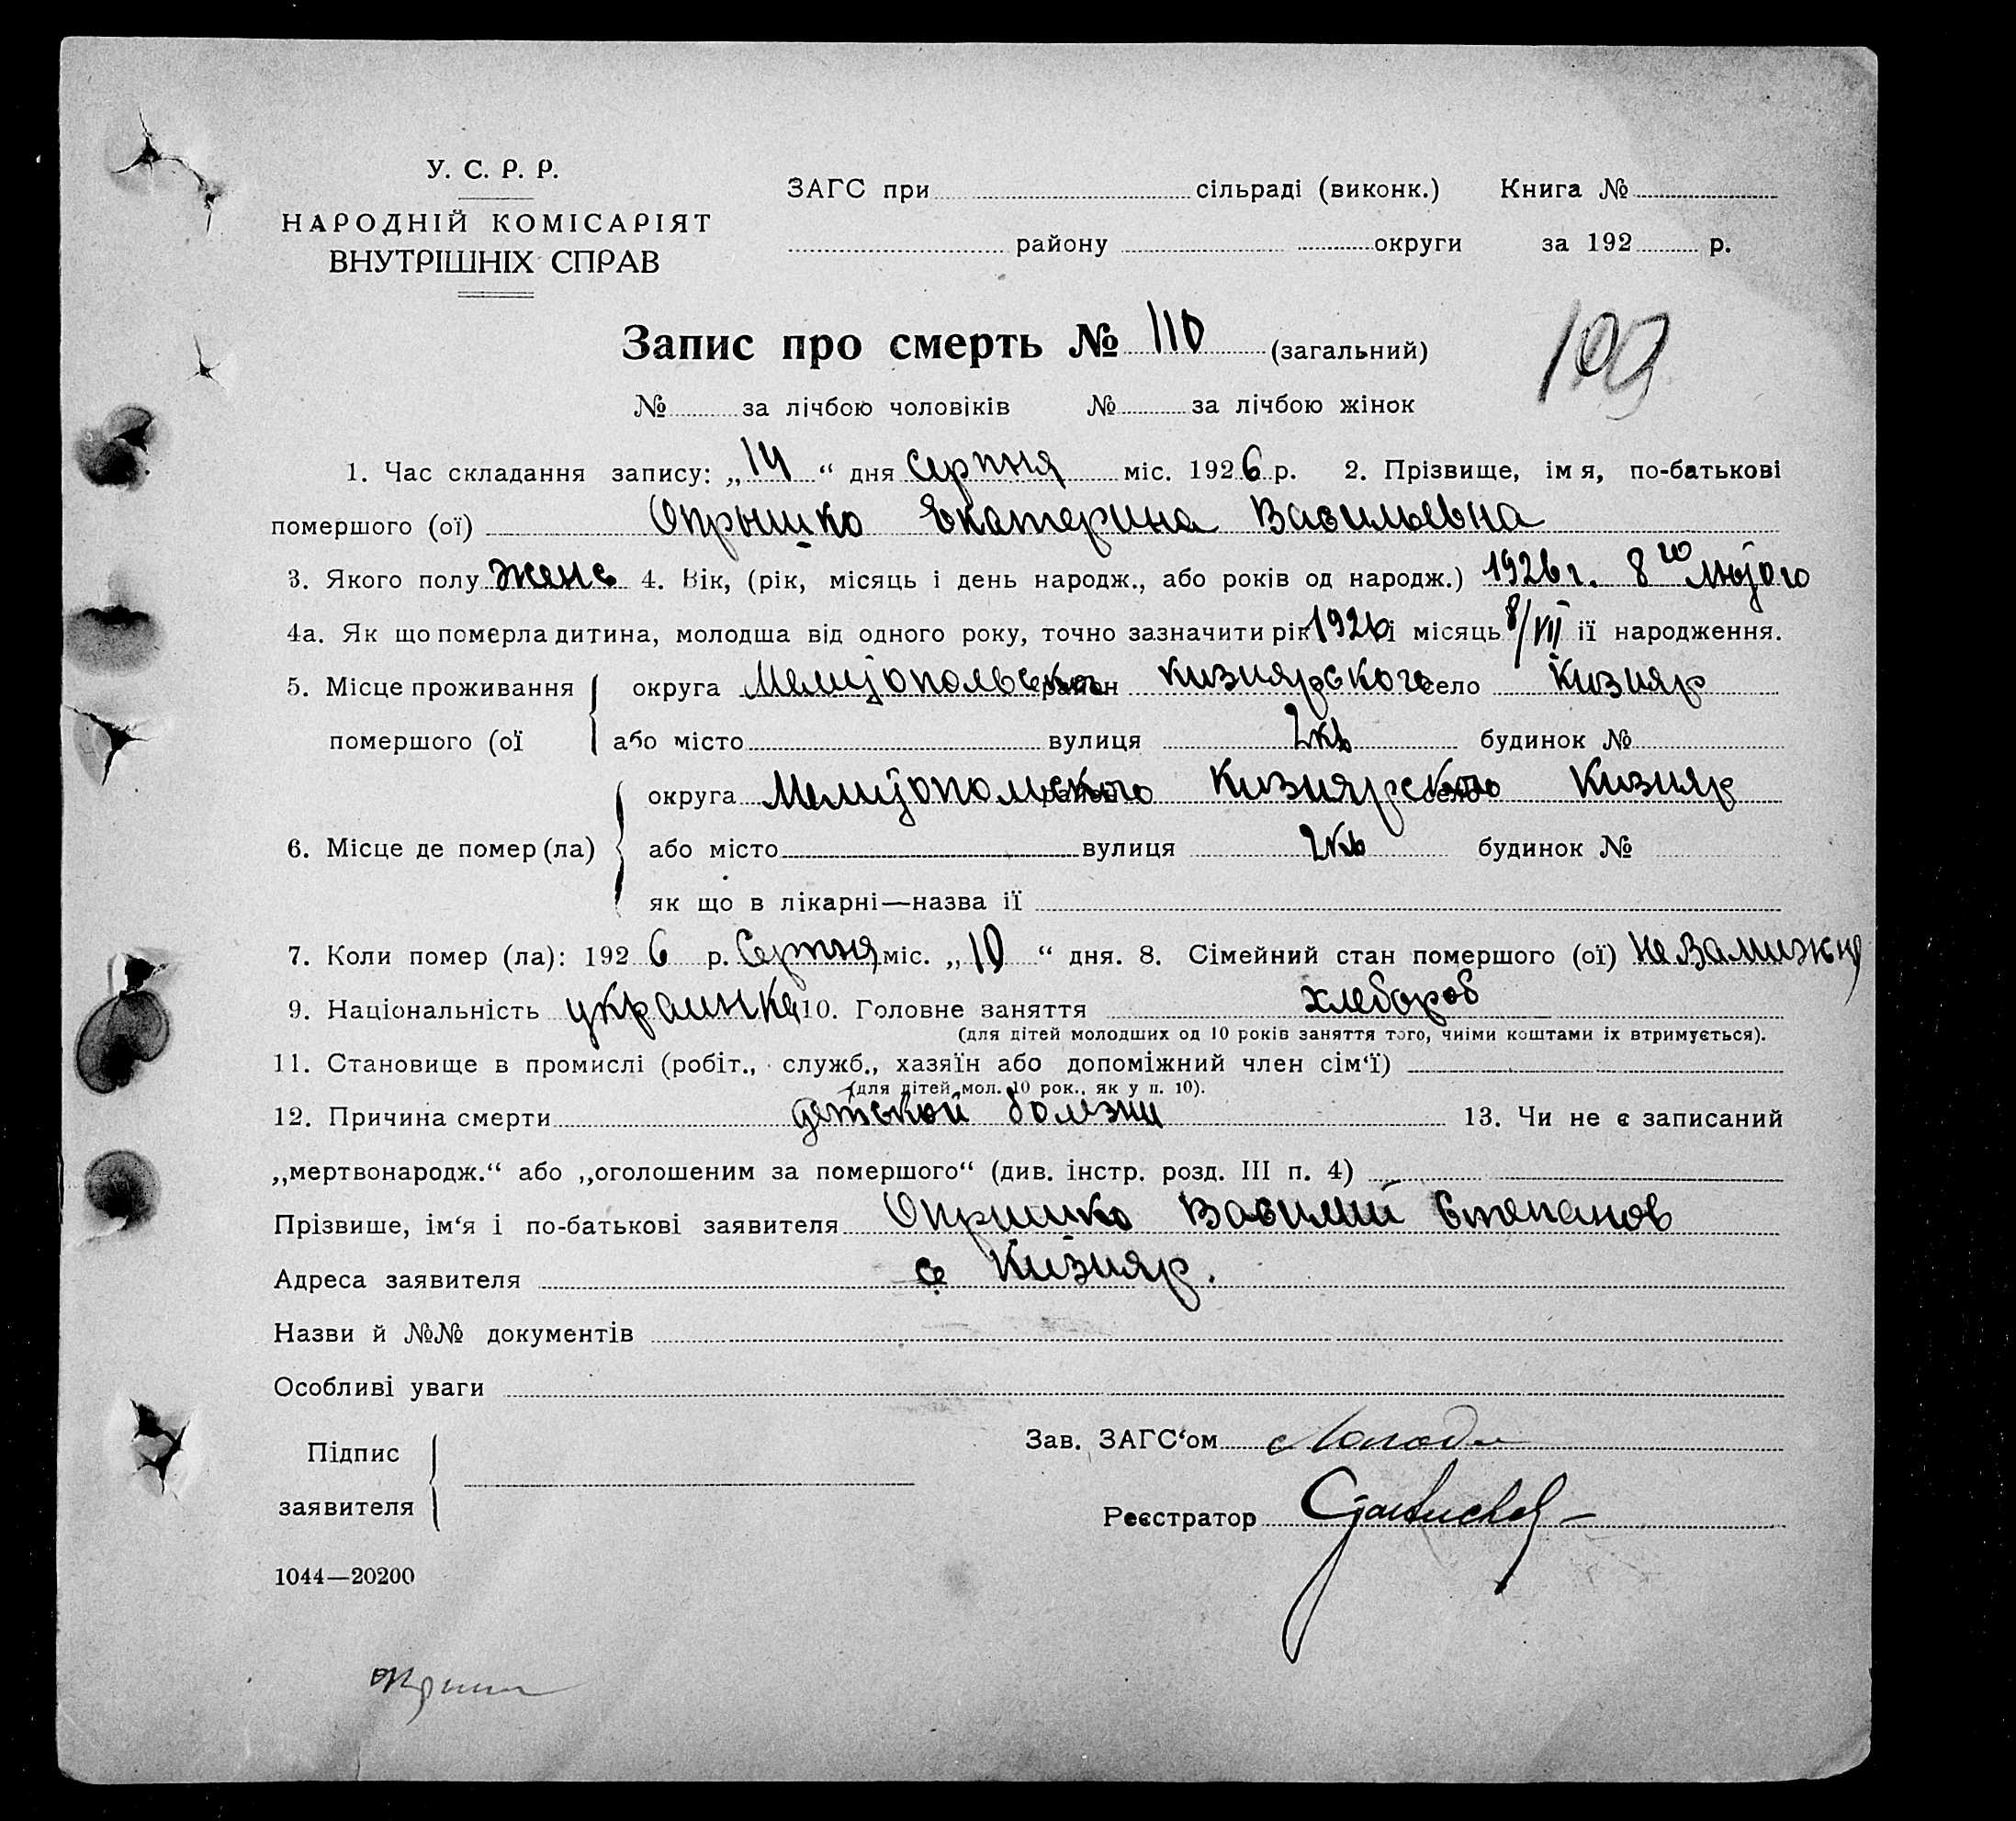 У. С. Р. Р.
НАРОДНІЙ КОМІСАРІЯТ
ВНУТРІШНІХ СПРАВ
ЗАГС при сільраді (виконк.) Книга №
району округи за 192 р.
Запис про смерть № 110 (загальний)
103
№ за лічбою чоловіків № за лічбою жінок
1. Час складання запису: „14“ дня Серпня міс. 1926 р. 2. Прізвище, імя, по-батькові
помершого (ої) Опрышко Екатерина Васильевна
3. Якого полу женс 4. Вік, (рік, місяць і день народж., або років од народж.) 1926 г. 8го Лютого
4а. Як що померла дитина, молодша від одного року, точно зазначити рік 1926 і місяць 8/VII її народження.
5. Місце проживання округа Мелитопольско район Кизиярського село Кизияр
помершого (ої або місто вулиця 2кв будинок №
округа Мелитопольского район Кизиярского село Кизияр
6. Місце де помер (ла) або місто вулиця 2кв будинок №
як що в лікарні—назва її
7. Коли помер (ла): 1926 р. Серпня міс. „10“ дня. 8. Сімейний стан помершого (ої) не Замижня
9. Національність украинка 10. Головне заняття хлебороб
(для дітей молодших од 10 років заняття того, чиїми коштами їх втримується).
11. Становище в промислі (робіт., служб., хазяїн або допоміжний член сім‘ї)
(для дітей мол. 10 рок., як у п. 10).
12. Причина смерти детской болезни 13. Чи не є записаний
„мертвонародж.“ або „оголошеним за помершого“ (див. інстр. розд. III п. 4)
Прізвише, ім‘я і по-батькові заявителя Опришко Василий Степанов
Адреса заявителя с Кизияр.
Назви й №№ документів
Особливі уваги
Підпис
заявителя
Зав. ЗАГС‘ом
Реєстратор
1044—20200